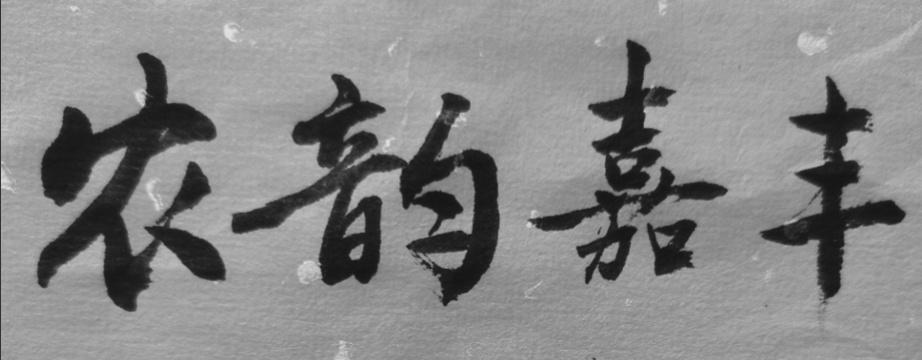 农韵嘉丰